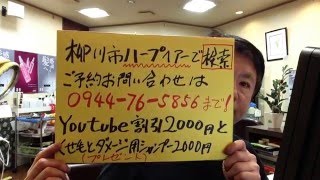 柳川市ハーブヘアーで検索
ご予約お問い合わせは
0944-76-5856まで!
Youtube割引2000円と
くせ毛とダメージ用シャンプー2000円
(プレゼント)